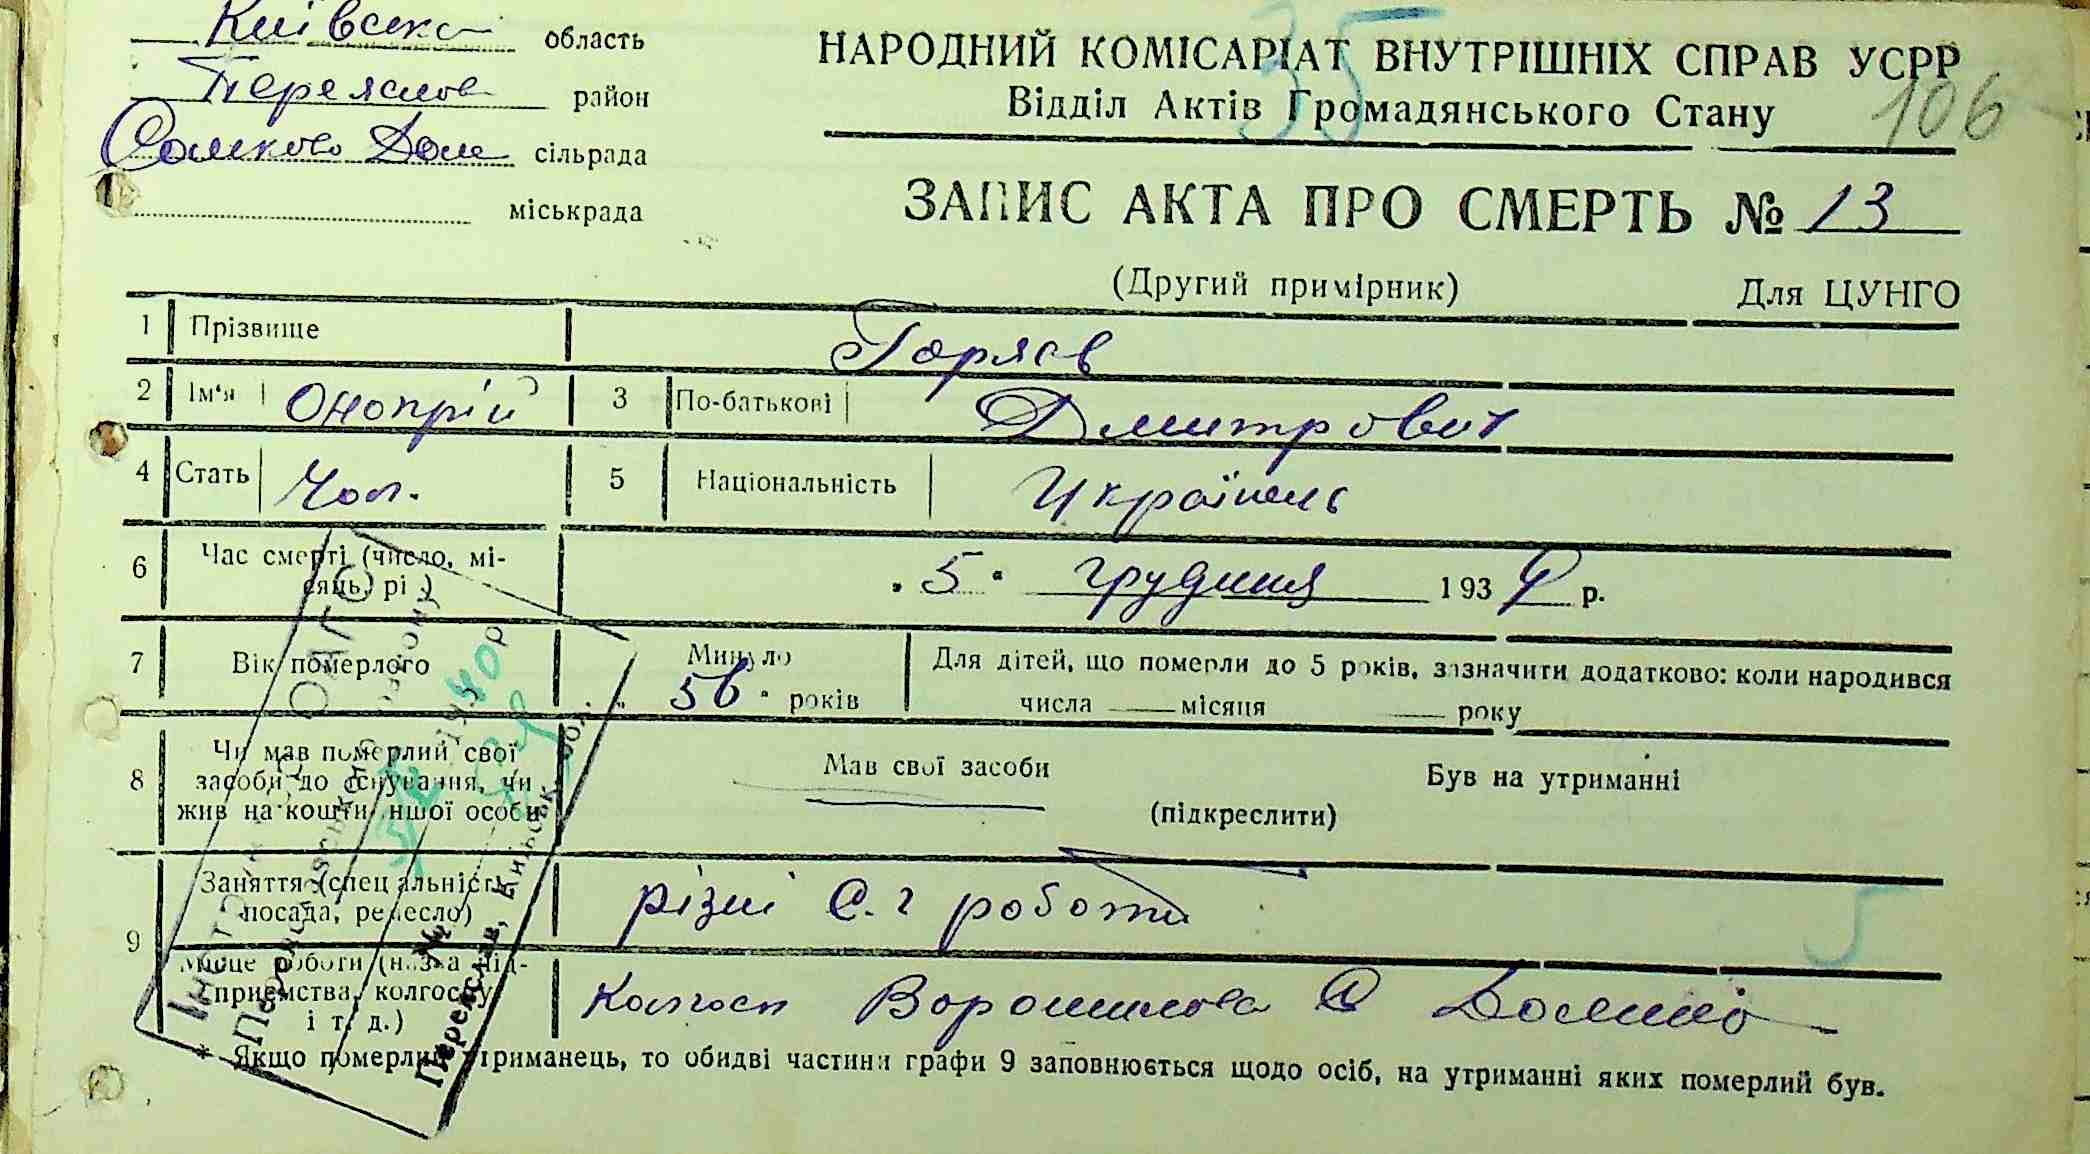 Київська область
Переяслов район
Сомково Доле сільрада
міськрада
35
НАРОДНИЙ КОМІСАРІАТ ВНУТРІШНІХ СПРАВ УСРР
Відділ Актів Громадянського Стану
106
ЗАПИС АКТА ПРО СМЕРТЬ № 13
(Другий примірник) Для ЦУНГО
1 Прізвище Горяєв
2 Ім'я Онопрій 3 По-батькові Дмитрович
4 Стать Чол. 5 Національність Українець
6 Час смерті (число, мі-
сяць, рі ) „ 5 " грудня 193 р.
7 Вік померлого Минуло Для дітей, що померли до 5 років, зазначити додатково: коли народився
„ 56 " років числа місяця року
8 Чи мав померлий свої
засоби до існування, чи
жив на кошти іншої особи
Мав свої засоби Був на утриманні
(підкреслити)
9 Заняття (спеціальність,
посада, ремесло) різні С.г роботи 5
Місце роботи (назва під-
приємства, колгоспу
і т. д.) Колгосп Ворошилова
* Якщо померлий утриманець, то обидві частини графи 9 заповнюється щодо осіб, на утриманні яких померлий був.
Переяслав, Київськ. обл.